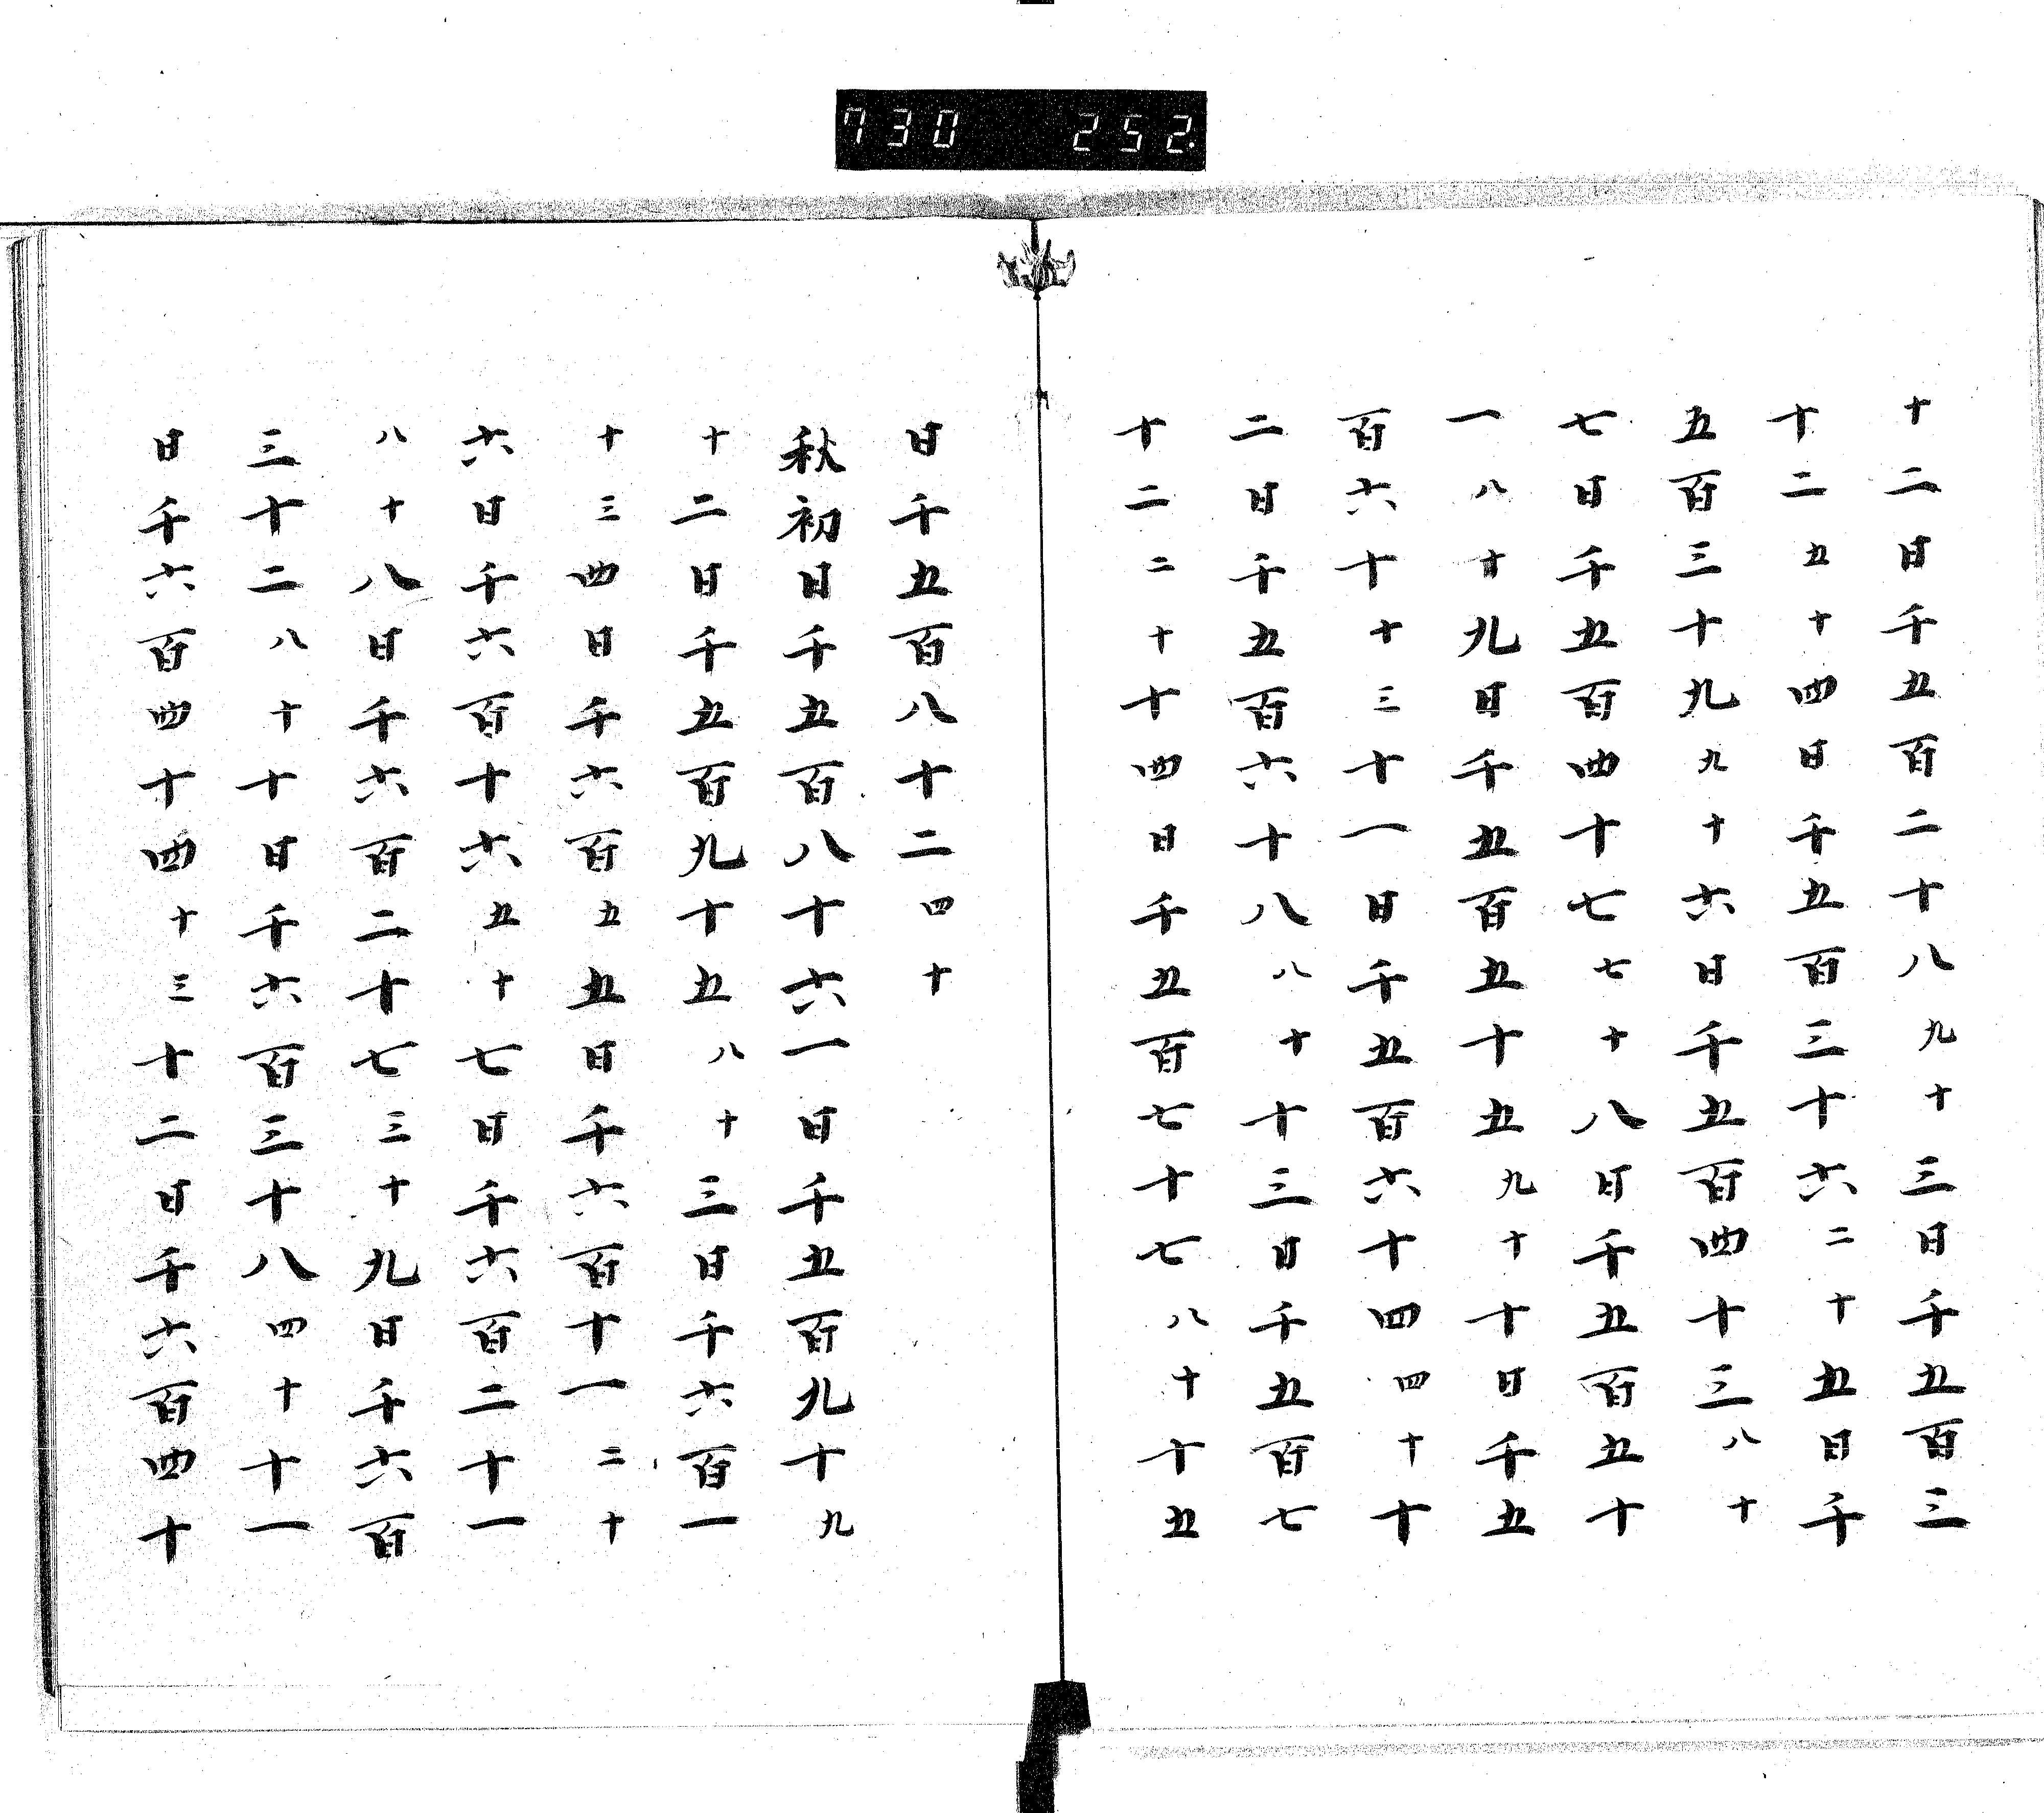 730 252.
十二日千五百二十八九十三日千五百三
十二五十四日千五百三十六二十五日千
五百三十九九十六日千五百四十三八十
七日千五百四十七七十八日千五百五十
一八十九日千五百五十五九十十日千五
百六十十三十一日千五百六十四四十十
二日千五百六十八八十十三日千五百七
十二二十十四日千五百七十七八十十五
日千五百八十二四十
秋初日千五百八十六一日千五百九十九
十二日千五百九十五八十三日千六百一
十三四日千六百五五日千六百十一三十
六日千六百十六五十七日千六百二十一
八十八日千六百二十七三十九日千六百
三十二八十十日千六百三十八四十十一
日千六百四十四十三十二日千六百四十